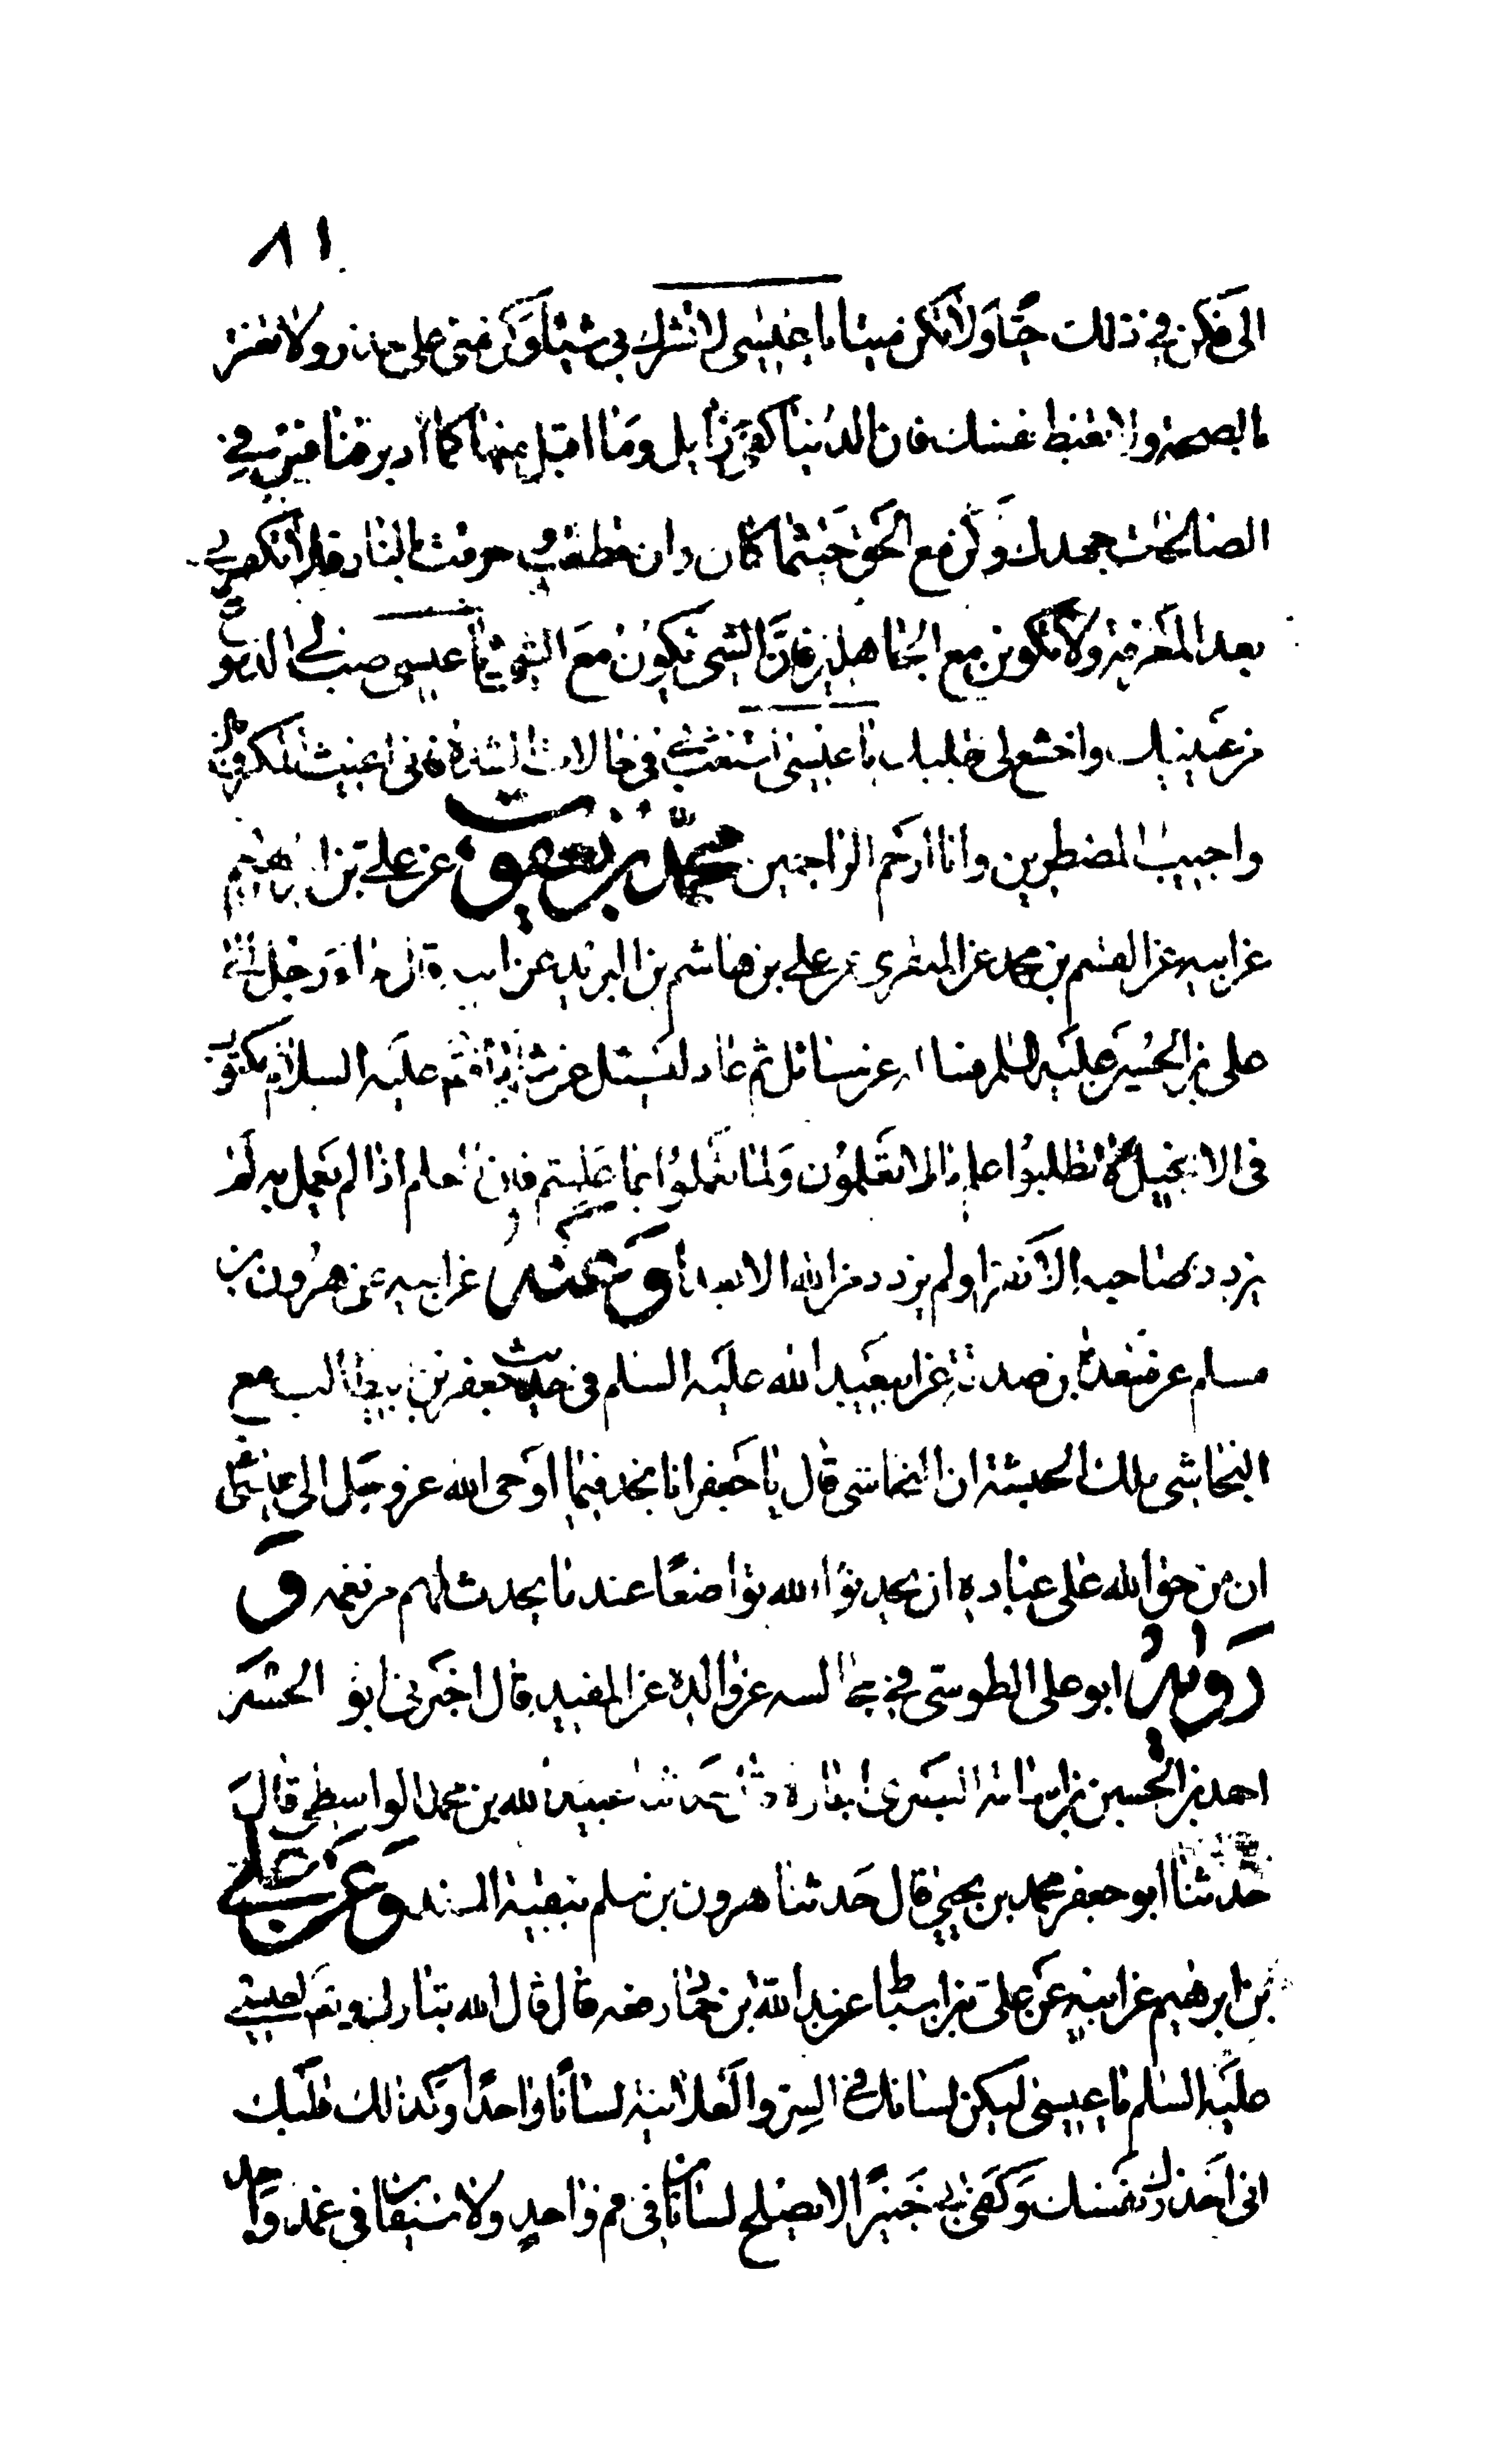 ٨١
الى فكن في ذلك حيا ولا تكن ميتا يا عيسى لا تشرك بي شيئا وكن منى على حذر ولا تغتر
بالصحة ولا تغبط نفسك فان الدنيا كفئ زايل وما اقبل منها كما ادبر فنافس في
الصالحات جهدك وكن مع الحق حيثما كان وان قطعت وحرقت بالنار فلا تكفر بي
بعد المعرفة ولا تكونن مع الجاهلين فان الشئ يكون مع الشئ يا عيسى صب لي الدموع
من عينيك واخشع لي بقلبك يا عيسى استغث بي في حالات الشدة فاني اغيث المكروبين
واجيب المضطرين وانا ارحم الراحمين محمد بن يعقوب عن علي بن ابرهيم
عن ابيه عن القسم بن محمد عن المنقري عن علي بن هاشم بن البريد عن ابيه قال جاء رجل الى
على بن الحسين عليه السلم فسأله عن مسائل ثم عاد ليسئل عن مثلها فقال عليه السلام مكتوب
في الانجيل لا تطلبوا علم ما لا تعلمون ولما تعملوا بما علمتم فان العلم اذا لم يعمل به لم
يزدد صاحبه الا كفرا ولم يزدد من الله الا بعدا وعنه عن ابيه عن هرون بن
مسلم عن مسعدة بن صدقة عن ابيعبد الله عليه السلم في حديث جعفر بن ابيطالب مع
النجاشي ملك الحبشة ان النجاشي قال يا جعفر انا نجد فيما اوحى الله عز وجل الى عيسى
ان من حق الله على عباده ان يحدثوا لله تواضعا عند ما يحدث لهم من نعمه و
رواه ابو على الطوسي في مجالسه عن والده عن المفيد قال اخبرني ابو الحسن
احمد بن الحسين بن اسامة البصرى اجازة قال حدثنا عبيد الله بن محمد الواسطي قال
حدثنا ابو جعفر محمد بن يحيى قال حدثنا هرون بن مسلم ببقية السند وعن علي
بن ابرهيم عن ابيه عن علي بن اسباط عن عبد الله بن حماد رفعه قال قال الله تبارك وتعالى لعيسى
عليه السلم يا عيسى ليكن لسانك في السر والعلانية لسانا واحدا وكذلك قلبك
انى احذرك نفسك وكفى بي خبيرا لا يصلح لسانان في فم واحد ولا سيفان في غمد واحد